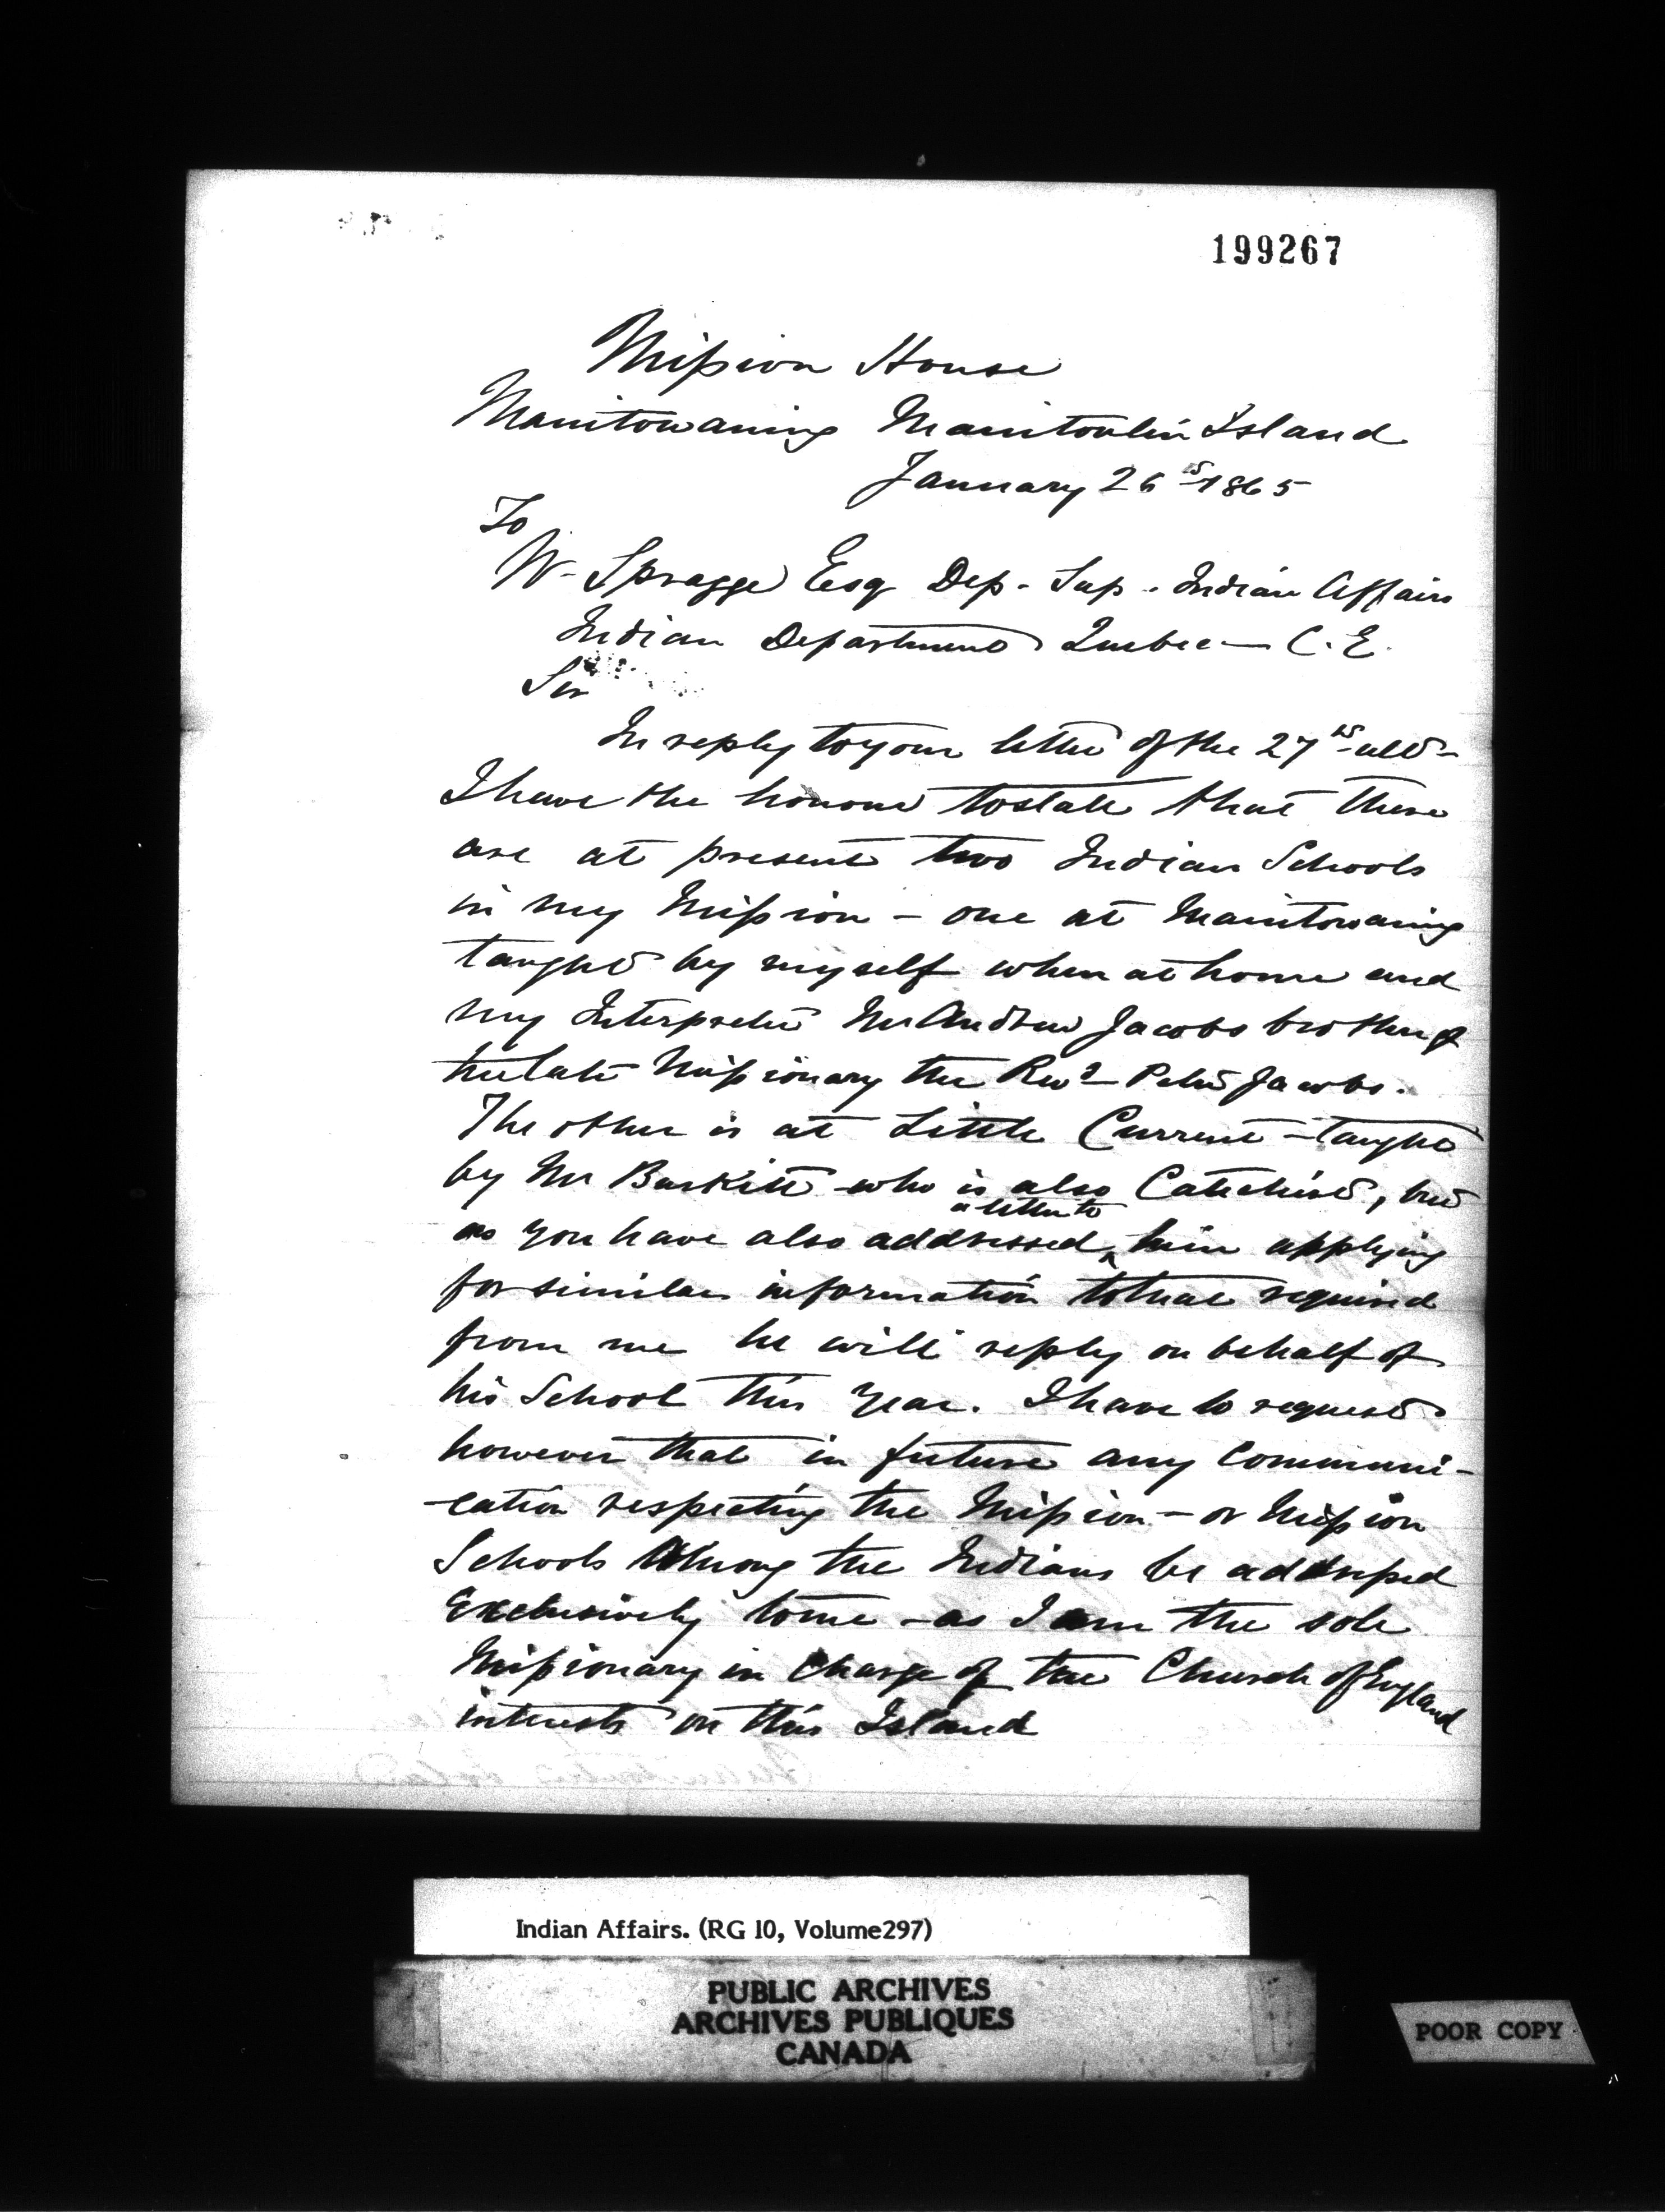 199267
Mission House
Manitowaning Manitoulin Island
January 26th 1865
To
W. Spragge Esq Dep. Sup. Indian Affairs
Indian Department Quebec — C.E.
Sir
In reply to your letter of the 27th ult-
I have the honour to state that there
are at present two Indian Schools
in my Mission - one at Manitowaning
taught by myself when at home and
my Interpreter Mr Andrew Jacobs brother of
the late Missionary the Revd Peter Jacobs.
The other is at Little Current - taught
by Mr Burkitt who is also Catechist, but
as you have also addressed a letter to him applying
for similar information to that required
from me he will reply on behalf of
his School this Year. I have to request
however that in future any Communi-
-cation respecting the Mission - or Mission
Schools Among the Indians be addressed
Exclusively to me - as I am the sole
Missionary in Charge of the Church of England
interests on this Island
Indian Affairs. (RG 10, Volume297)
PUBLIC ARCHIVES
ARCHIVES PUBLIQUES
CANADA
POOR COPY